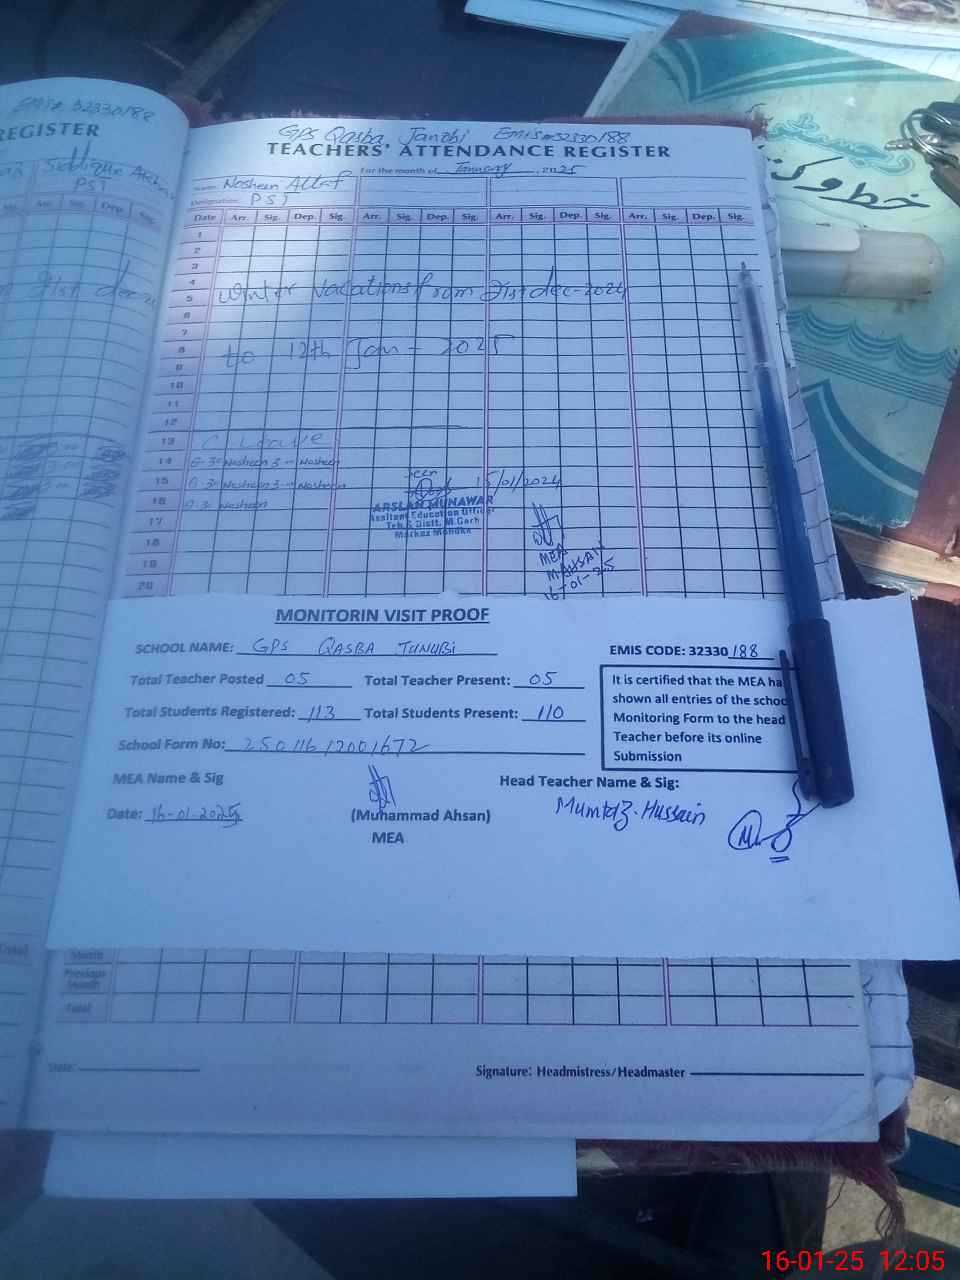 EMIS# 32330188
REGISTER
Siddique
PST
Arr. Sig. Dep. Sig.
21st dec-24
GPS Qasba Janobi EMIS#32330188
TEACHERS' ATTENDANCE REGISTER
For the month of January 2025
Name Nosheen Altaf
Designation PST
Date Arr. Sig. Dep. Sig. Arr. Sig. Dep. Sig. Arr. Sig. Dep. Sig. Arr. Sig. Dep. Sig.
1
2
3
4
winter vacations from 21st dec-2024
5
6
7
8
to 12th Jan - 2025
9
10
11
12
13 C. Leave
14 8-30 Nosheen 3- Nosheen
15 8-30 Nosheen 3- Nosheen
16 8-30 Nosheen
17
18
19
20
Seen
15/01/2024
ARSLAN MUNAWAR
Assitant Education Officer
Teh & Distt. M.Garh
Markaz Mondka
MEA
M. AHSAN
16-01-25
MONITORIN VISIT PROOF
SCHOOL NAME: GPS QASBA JUNUBI
EMIS CODE: 32330 188
Total Teacher Posted 05 Total Teacher Present: 05
Total Students Registered: 113 Total Students Present: 110
School Form No: 25011612001672
It is certified that the MEA ha
shown all entries of the schoo
Monitoring Form to the head
Teacher before its online
Submission
MEA Name & Sig
Head Teacher Name & Sig:
Date: 16-01-2025
(Muhammad Ahsan)
MEA
Mumtaz Hussain
Month
Previous Month
Total
Total
Date:
Signature: Headmistress/Headmaster
16-01-25 12:05